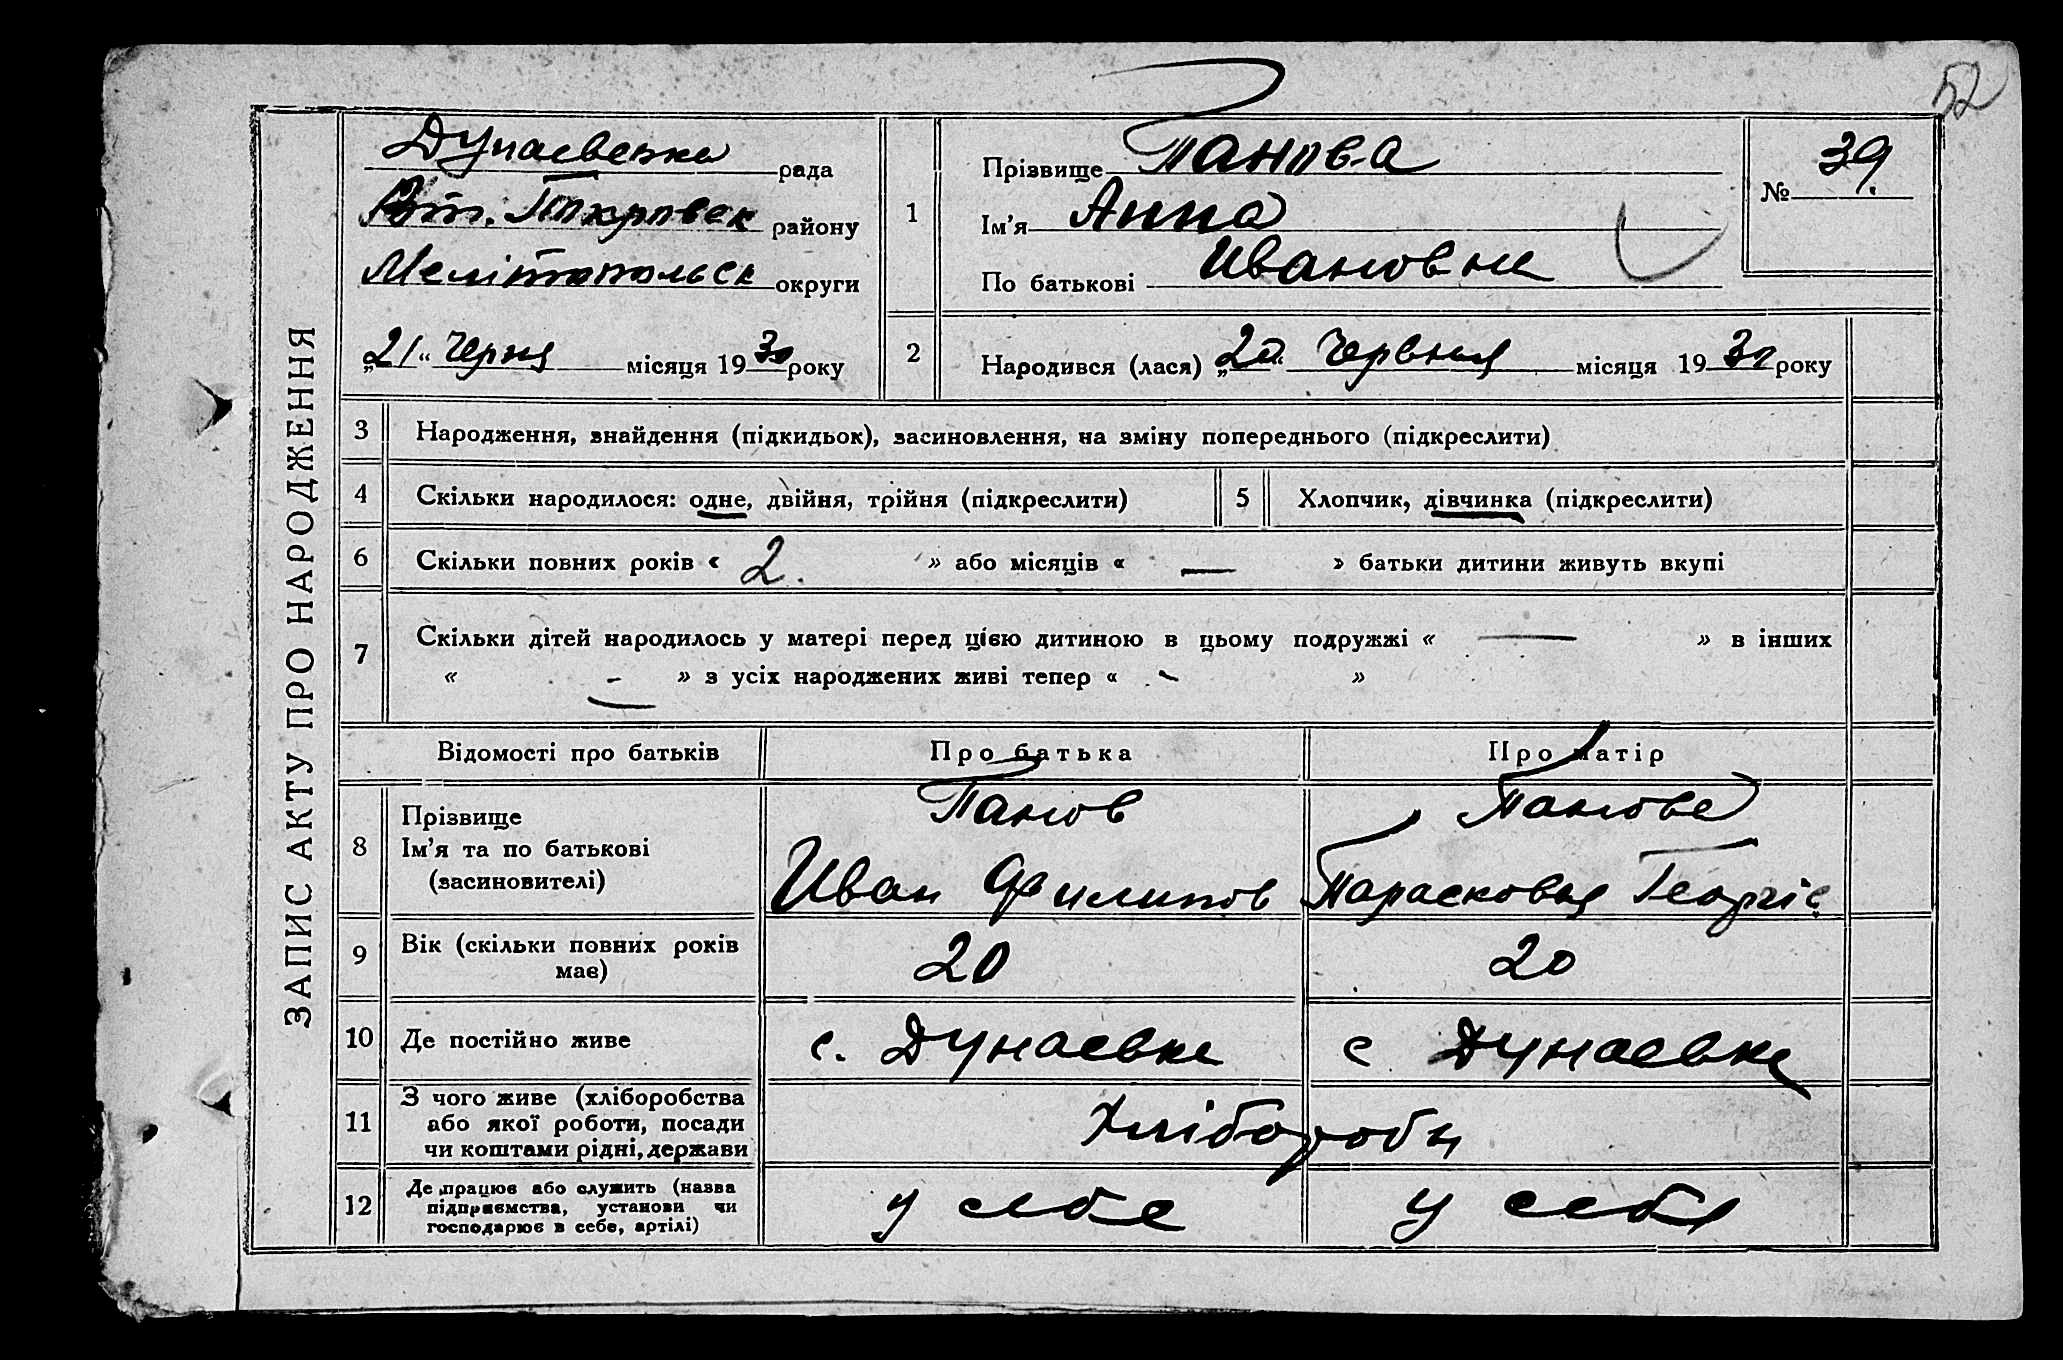 52
ЗАПИС АКТУ ПРО НАРОДЖЕННЯ
Дунаевська рада
Покровск району
Мелітопольск округи
„21“ Черня місяця 1930 року
1
Прізвище Панова
Ім'я Анна
По батькові Ивановна
№ 39.
2
Народився (лася) „20“ Червня місяця 1930 року
3 Народження, знайдення (підкидьок), засиновлення, на зміну попереднього (підкреслити)
4 Скільки народилося: одне, двійня, трійня (підкреслити) 5 Хлопчик, дівчинка (підкреслити)
6 Скільки повних років « 2. » або місяців « — » батьки дитини живуть вкупі
7 Скільки дітей народилось у матері перед цією дитиною в цьому подружжі « — » в інших
« - » з усіх народжених живі тепер « - »
Відомості про батьків Про батька Про матір
8 Прізвище
Ім'я та по батькові
(засиновителі)
Панов
Иван Филипов
Панова
Парасковья Георгіє
9 Вік (скільки повних років
має)
20 20
10 Де постійно живе с. Дунаевка с Дунаевка
11 З чого живе (хліборобства
або якої роботи, посади
чи коштами рідні, держави
Хлібороби
12 Де працює або служить (назва
підприємства, установи чи
господарює в себе, артілі)
у себе у себя